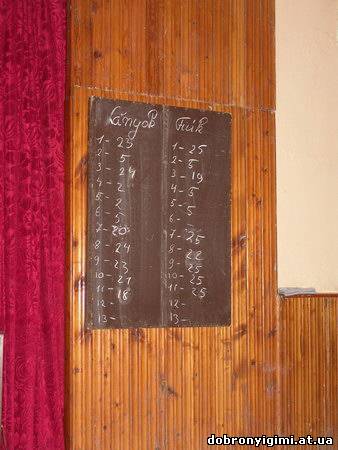 Lányok
1- 25
2- 5
3- 24
4- 2
5- 2
6- 5
7- 20
8- 24
9- 23
10- 21
11- 18
12-
13-
Fiúk
1- 25
2- 5
3- 19
4- 5
5- 5
6-
7- 25
8- 22
9- 25
10- 25
11- 25
12-
13-
dobronyigimi.at.ua